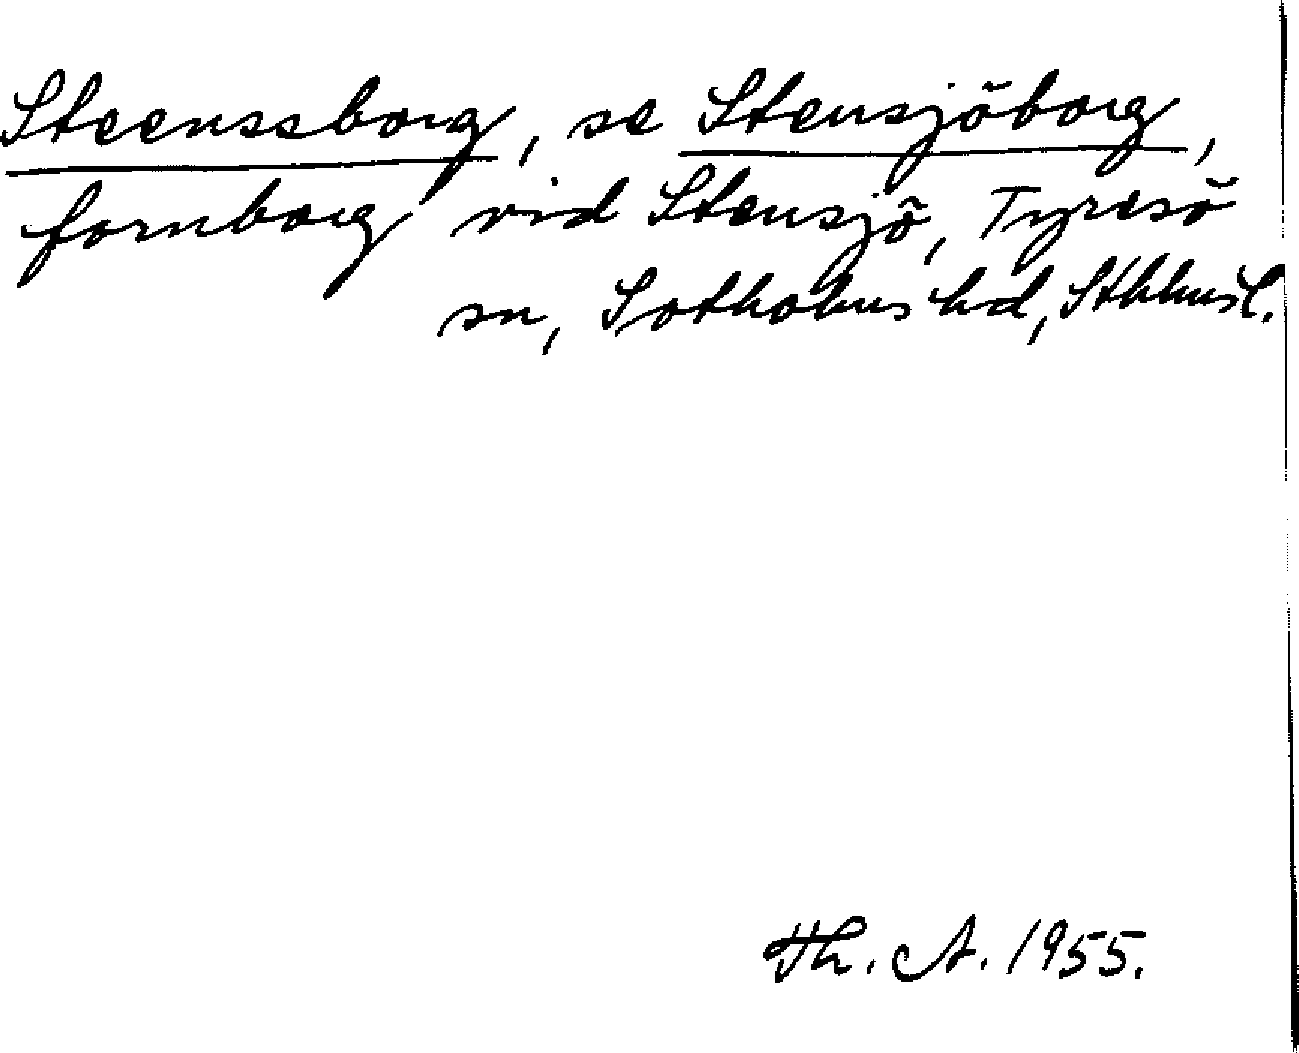 Steenssborg, se Stensjöborg,
fornborg vid Stensjö, Tyresö
sn, Sotholms hd, Sthlms l.
Th. A. 1955.